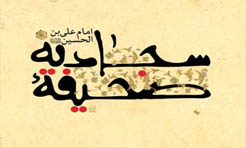 امام علی بن
الحسین
سجادیه
صحیفة